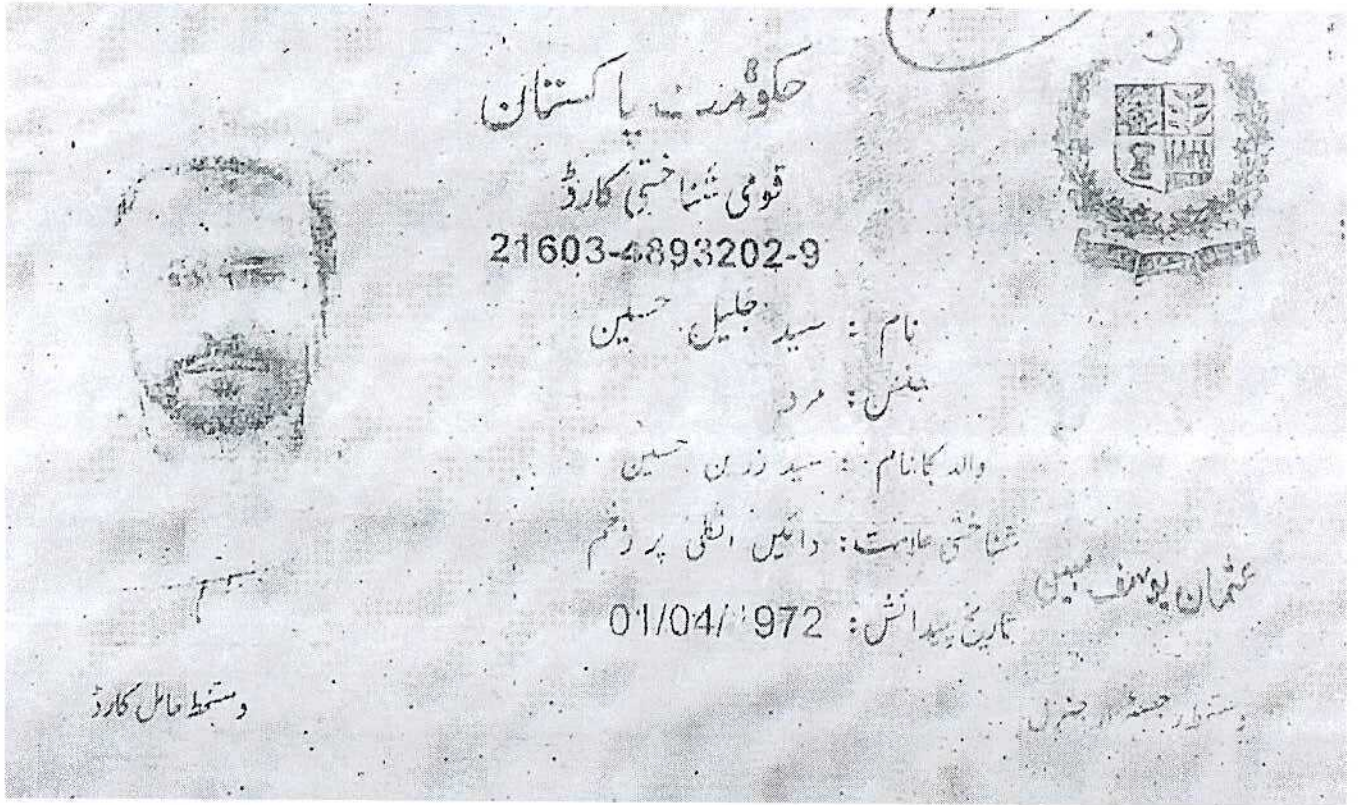 حکومت پاکستان
قومی شناختی کارڈ
21603-4893202-9
نام : سید جلیل حسین
جنس : مرد
والد کا نام : سید زرین حسین
شناختی علامت : دائیں انگلی پر زخم
تاریخ پیدائش : 01/04/1972
عثمان یوسف مبین
دستخط حامل کارڈ
دستخط رجسٹرار جنرل